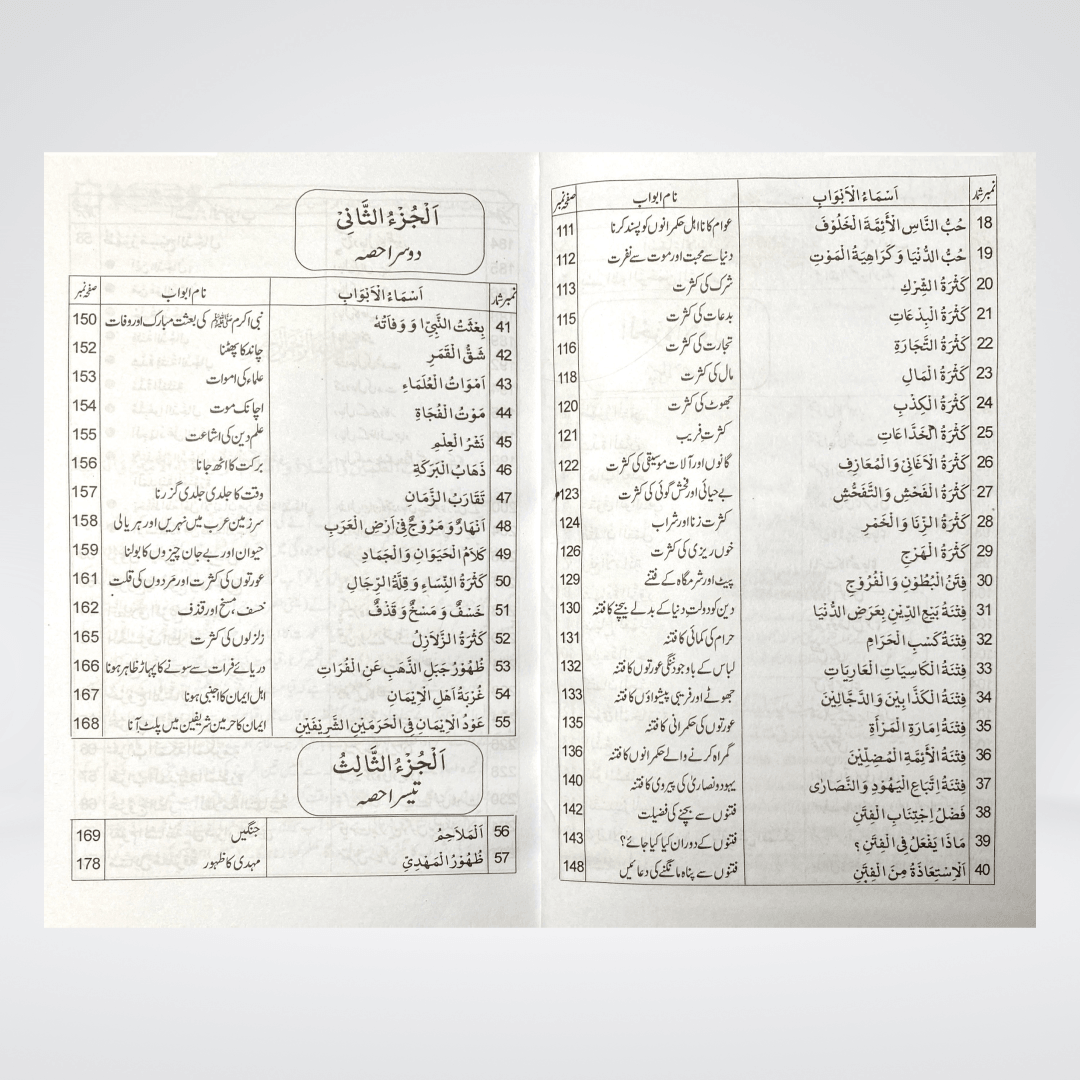 نمبر شمار اَسْمَاءُ الْاَبْوَابِ نام ابواب صفحہ نمبر
18 حُبُّ النَّاسِ الْأَئِمَّةَ الْخَلُوْفَ عوام کا نااہل حکمرانوں کو پسند کرنا 111
19 حُبُّ الدُّنْيَا وَ كَرَاهِيَةُ الْمَوْتِ دنیا سے محبت اور موت سے نفرت 112
20 كَثْرَةُ الشِّرْكِ شرک کی کثرت 113
21 كَثْرَةُ الْبِدْعَاتِ بدعات کی کثرت 115
22 كَثْرَةُ التِّجَارَةِ تجارت کی کثرت 116
23 كَثْرَةُ الْمَالِ مال کی کثرت 118
24 كَثْرَةُ الْكِذْبِ جھوٹ کی کثرت 120
25 كَثْرَةُ الْخَدَّاعَاتِ کثرتِ فریب 121
26 كَثْرَةُ الْاَغَانِيْ وَالْمُعَازِفِ گانوں اور آلات موسیقی کی کثرت 122
27 كَثْرَةُ الْفَحْشِ وَالتَّفَحُّشِ بے حیائی اور فحش گوئی کی کثرت 123
28 كَثْرَةُ الزِّنَا وَ الْخَمْرِ کثرت زنا اور شراب 124
29 كَثْرَةُ الْهَرْجِ خوں ریزی کی کثرت 126
30 فِتَنُ الْبُطُوْنِ وَ الْفُرُوْجِ پیٹ اور شرمگاہ کے فتنے 129
31 فِتْنَةُ بَيْعِ الدِّيْنِ بِعَرَضِ الدُّنْيَا دین کو دولتِ دنیا کے بدلے بیچنے کا فتنہ 130
32 فِتْنَةُ كَسْبِ الْحَرَامِ حرام کی کمائی کا فتنہ 131
33 فِتْنَةُ الْكَاسِيَاتِ الْعَارِيَاتِ لباس کے باوجود ننگی عورتوں کا فتنہ 132
34 فِتْنَةُ الْكَذَّابِيْنَ وَالدَّجَّالِيْنَ جھوٹے اور فریبی پیشواؤں کا فتنہ 133
35 فِتْنَةُ اِمَارَةِ الْمَرْأَةِ عورتوں کی حکمرانی کا فتنہ 135
36 فِتْنَةُ الْأَئِمَّةِ الْمُضِلِّيْنَ گمراہ کرنے والے حکمرانوں کا فتنہ 136
37 فِتْنَةُ اِتِّبَاعِ الْيَهُوْدِ وَالنَّصَارٰى یہود و نصاریٰ کی پیروی کا فتنہ 140
38 فَضْلُ اِجْتِنَابِ الْفِتَنِ فتنوں سے بچنے کی فضیلت 142
39 مَاذَا يَفْعَلُ فِي الْفِتَنِ ؟ فتنوں کے دوران کیا کیا جائے؟ 143
40 اَلْاِسْتِعَاذَةُ مِنَ الْفِتَنِ فتنوں سے پناہ مانگنے کی دعائیں 148
اَلْجُزْءُ الثَّانِيْ
دوسرا حصہ
نمبر شمار اَسْمَاءُ الْاَبْوَابِ نام ابواب صفحہ نمبر
41 بِعْثَتُ النَّبِيِّ ا وَ وَفَاتُهُ نبی اکرم ﷺ کی بعثت مبارک اور وفات 150
42 شَقُّ الْقَمَرِ چاند کا پھٹنا 152
43 اَمْوَاتُ الْعُلَمَاءِ علماء کی اموات 153
44 مَوْتُ الْفُجَاةِ اچانک موت 154
45 نَشْرُ الْعِلْمِ علم دین کی اشاعت 155
46 ذَهَابُ الْبَرَكَةِ برکت کا اٹھ جانا 156
47 تَقَارَبُ الزَّمَانِ وقت کا جلدی جلدی گزرنا 157
48 اَنْهَارٌ وَ مَرُوْجٌ فِيْ اَرْضِ الْعَرَبِ سرزمین عرب میں نہریں اور ہریالی 158
49 كَلَامُ الْحَيَوَانِ وَ الْجَمَادِ حیوان اور بے جان چیزوں کا بولنا 159
50 كَثْرَةُ النِّسَاءِ وَ قِلَّةُ الرِّجَالِ عورتوں کی کثرت اور مردوں کی قلت 161
51 خَسْفٌ وَ مَسْخٌ وَ قَذْفٌ خسف، مسخ اور قذف 162
52 كَثْرَةُ الزَّلَازِلُ زلزلوں کی کثرت 165
53 ظُهُوْرُ جَبَلِ الذَّهَبِ عَنِ الْفُرَاتِ دریائے فرات سے سونے کا پہاڑ ظاہر ہونا 166
54 غُرْبَةُ اَهْلِ الْاِيْمَانِ اہل ایمان کا اجنبی ہونا 167
55 عَوْدُ الْاِيْمَانِ فِي الْحَرَمَيْنِ الشَّرِيْفَيْنِ ایمان کا حرمین شریفین میں پلٹ آنا 168
اَلْجُزْءُ الثَّالِثُ
تیسرا حصہ
56 اَلْمَلَاحِمُ جنگیں 169
57 ظُهُوْرُ الْمَهْدِيِّ مہدی کا ظہور 178